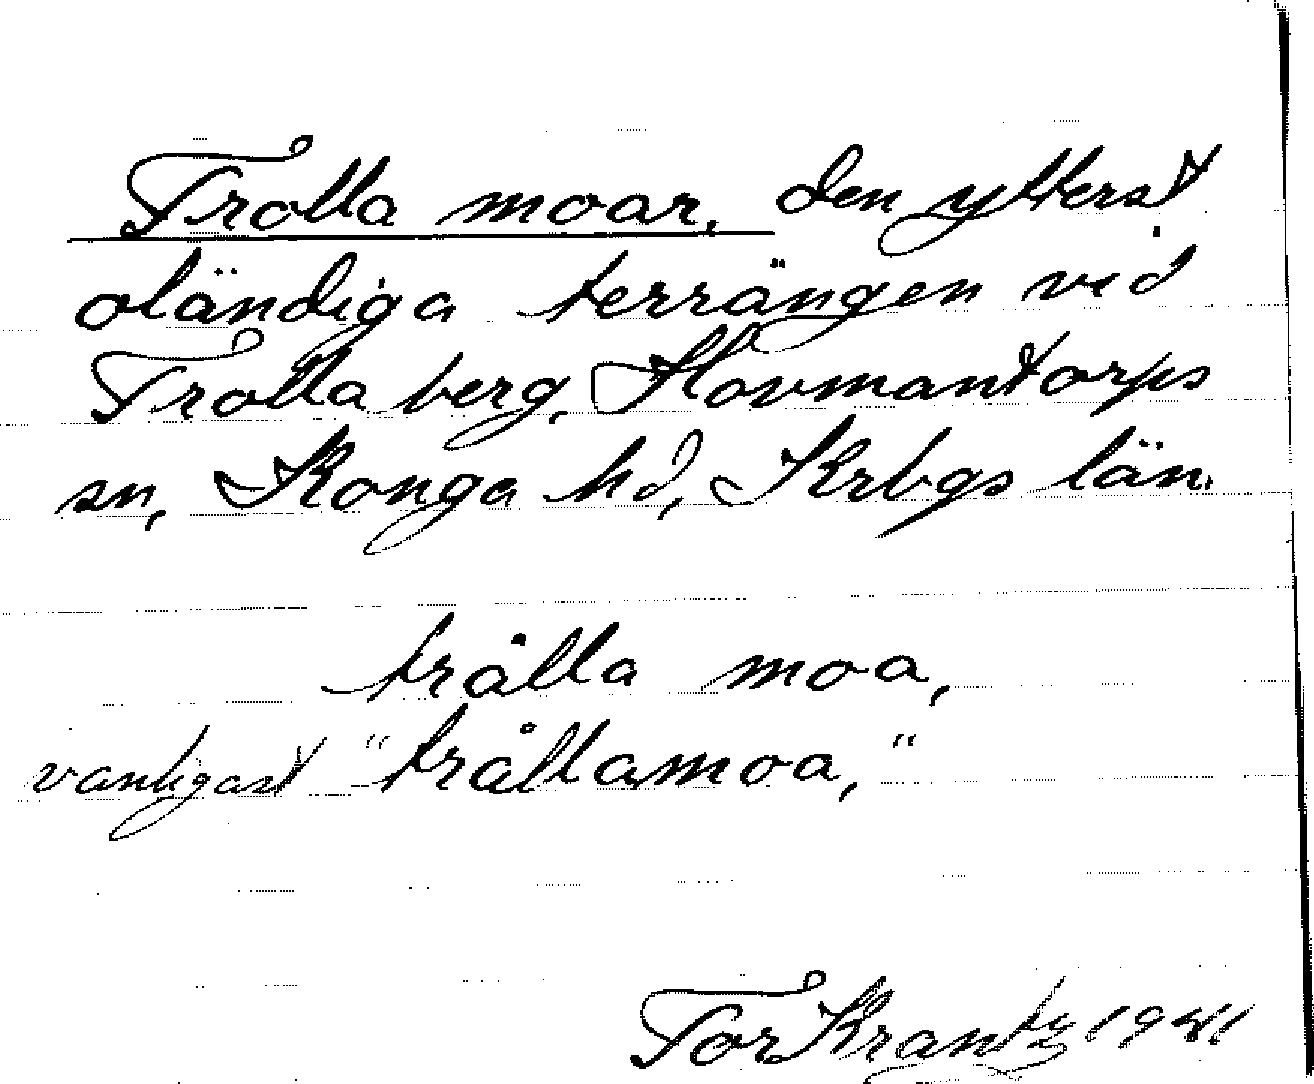 Trolla moar, den ytterst
oländiga terrängen vid
Trolla berg, Hovmantorps
sn, Konga hd, Krbgs län.
trålla moa,
vanligast "trållamoa,"
Tor Krantz 1941